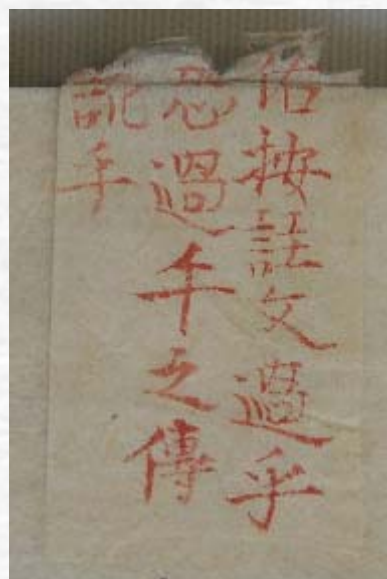 佑按註文過乎
恐過千之傳
訛乎